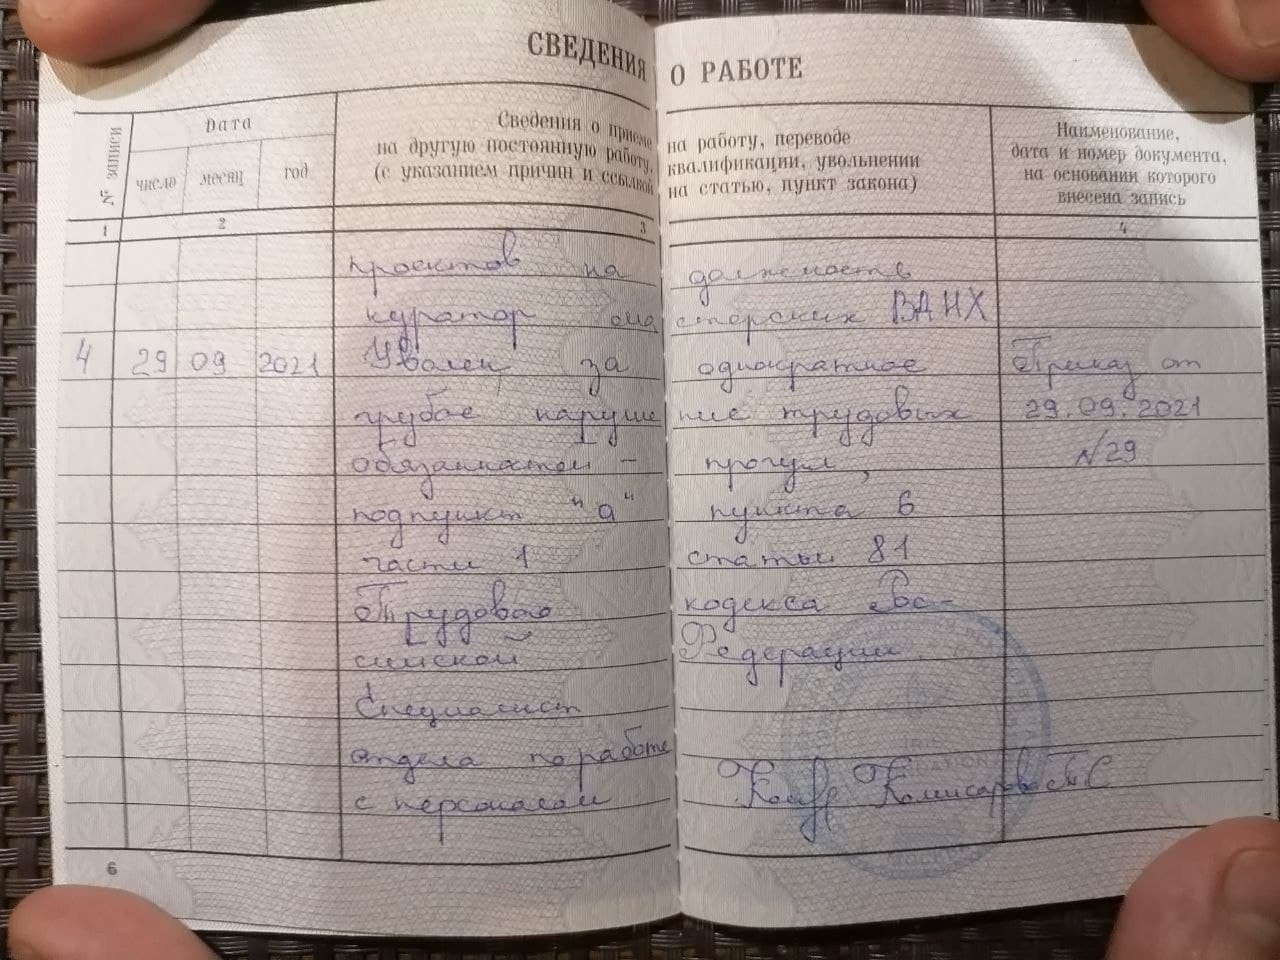 СВЕДЕНИЯ О РАБОТЕ
№ записи
Дата
число
месяц
год
Сведения о приеме на работу, переводе
на другую постоянную работу, квалификации, увольнении
(с указанием причин и ссылкой на статью, пункт закона)
Наименование,
дата и номер документа,
на основании которого
внесена запись
1 2 3 4
проектов на должность
куратор мастерских ВДНХ
4 29 09 2021 Уволен за однократное Приказ от
грубое нарушение трудовых 29.09.2021
обязанностей – прогул, №29
подпункт "а" пункта 6
части 1 статьи 81
Трудового кодекса Рос-
сийской Федерации
Специалист
отдела по работе
с персоналом Комиссарова С
6